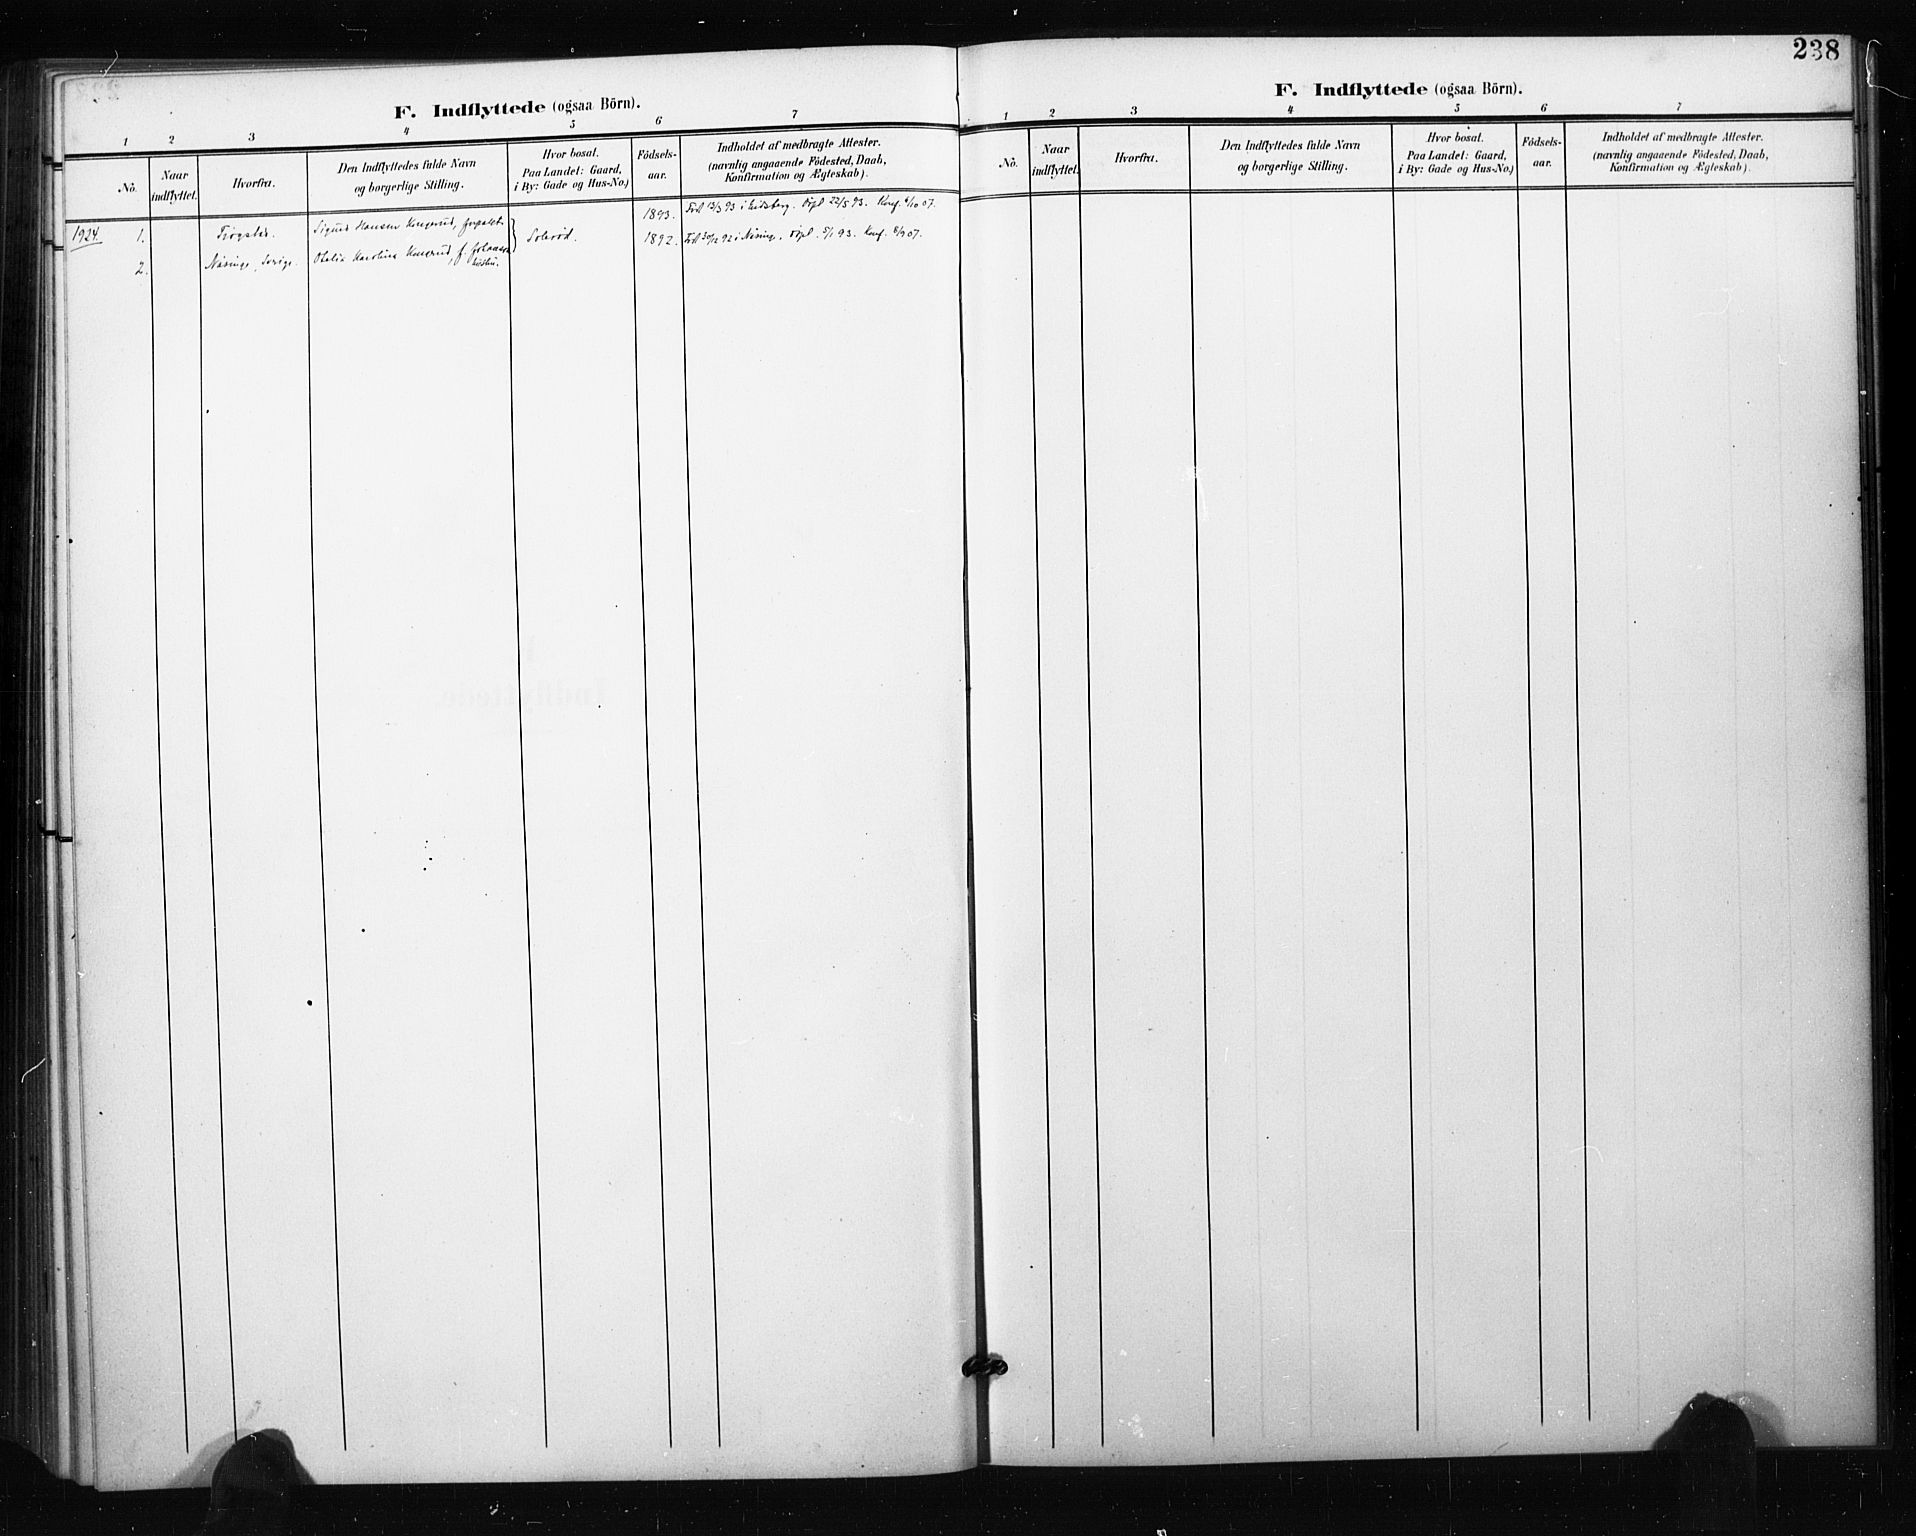 238
F. Indflyttede (ogsaa Börn).
1 2 3 4 5 6 7
No.
Naar
indflyttet.
Hvorfra.
Den Indflyttedes fulde Navn
og borgerlige Stilling.
Hvor bosat.
Paa Landet: Gaard,
i By: Gade og Hus-No.)
Födsels-
aar.
Indholdet af medbragte Attester.
(navnlig angaaende Födested, Daab,
Konfirmation og Ægteskab).
1924.
1. Trøgstad. Sigurd Hansen Kongerud, 1893. Født 13/3 93 i Eidsberg. Døpt 22/5 93. Konf. 6/10 07.
Solerød.
2. Näsinge, Sverige. Otelia Karolina Kongerud, f. Johansson 1892. Født 30/12 92 i Näsinge, Døpt 5/1 93. Konf. 8/9 07.
hustru.
F. Indflyttede (ogsaa Börn).
1 2 3 4 5 6 7
No.
Naar
indflyttet.
Hvorfra.
Den Indflyttedes fulde Navn
og borgerlige Stilling.
Hvor bosat.
Paa Landet: Gaard,
i By: Gade og Hus-No.)
Födsels-
aar.
Indholdet af medbragte Attester.
(navnlig angaaende Födested, Daab,
Konfirmation og Ægteskab).